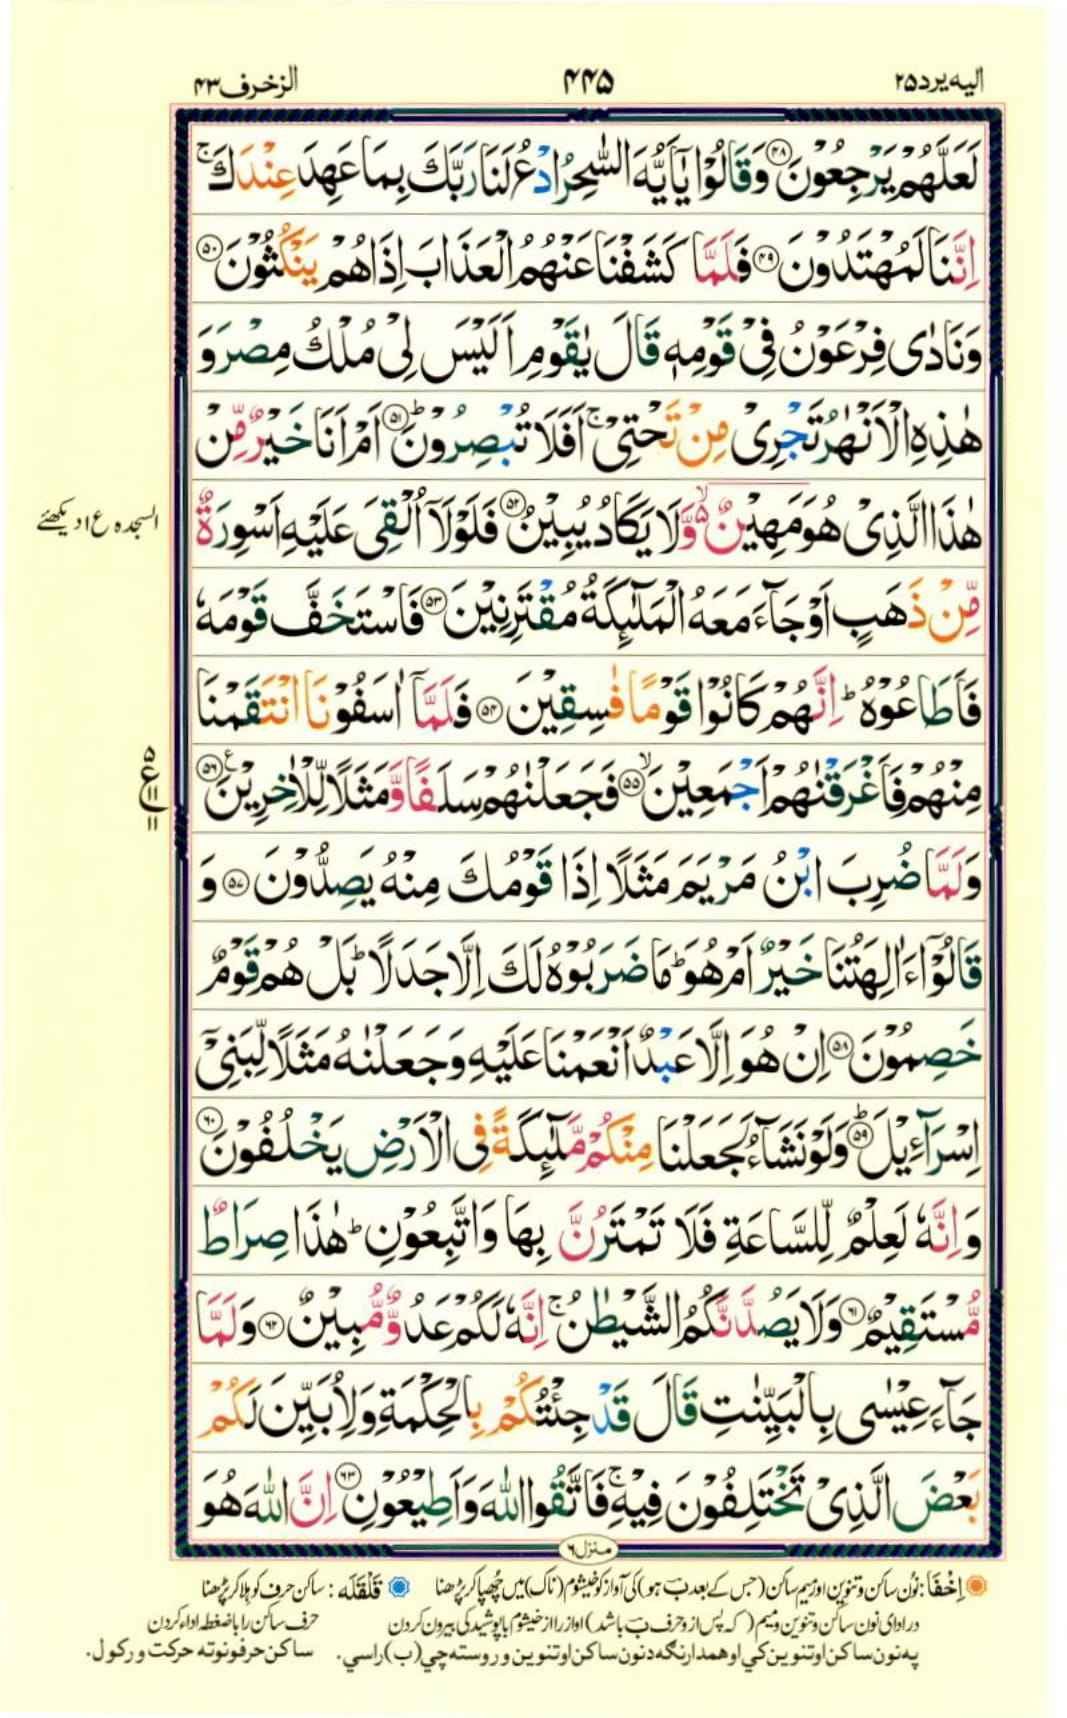 الیه یرد ۲۵
۴۴۵
الزخرف ۴۳
لَعَلَّهُمْ يَرْجِعُوْنَ ﴿۴۸﴾ وَقَالُوْا يٰۤاَيُّهَ السّٰحِرُ ادْعُ لَنَا رَبَّكَ بِمَا عَهِدَ عِنْدَكَ ۚ
اِنَّنَا لَمُهْتَدُوْنَ ﴿۴۹﴾ فَلَمَّا كَشَفْنَا عَنْهُمُ الْعَذَابَ اِذَا هُمْ يَنْكُثُوْنَ ﴿۵۰﴾
وَنَادٰى فِرْعَوْنُ فِيْ قَوْمِهٖ قَالَ يٰقَوْمِ اَلَيْسَ لِيْ مُلْكُ مِصْرَ وَ
هٰذِهِ الْاَنْهٰرُ تَجْرِيْ مِنْ تَحْتِيْ ۚ اَفَلَا تُبْصِرُوْنَ ﴿۵۱﴾ؕ اَمْ اَنَا خَيْرٌ مِّنْ
هٰذَا الَّذِيْ هُوَ مَهِيْنٌ ۙ۬ وَّلَا يَكَادُ يُبِيْنُ ﴿۵۲﴾ فَلَوْلَاۤ اُلْقِيَ عَلَيْهِ اَسْوِرَةٌ
السجدہ ع ۱ دیکھئے
مِّنْ ذَهَبٍ اَوْ جَآءَ مَعَهُ الْمَلٰٓئِكَةُ مُقْتَرِنِيْنَ ﴿۵۳﴾ فَاسْتَخَفَّ قَوْمَهٗ
فَاَطَاعُوْهُ ؕ اِنَّهُمْ كَانُوْا قَوْمًا فٰسِقِيْنَ ﴿۵۴﴾ فَلَمَّاۤ اٰسَفُوْنَا انْتَقَمْنَا
مِنْهُمْ فَاَغْرَقْنٰهُمْ اَجْمَعِيْنَ ﴿۵۵﴾ۙ فَجَعَلْنٰهُمْ سَلَفًا وَّمَثَلًا لِّلْاٰخِرِيْنَ ﴿۵۶﴾ع
۵ ع ۱۱ ۱۱
وَلَمَّا ضُرِبَ ابْنُ مَرْيَمَ مَثَلًا اِذَا قَوْمُكَ مِنْهُ يَصِدُّوْنَ ﴿۵۷﴾ وَ
قَالُوْۤا ءَاٰلِهَتُنَا خَيْرٌ اَمْ هُوَ ؕ مَا ضَرَبُوْهُ لَكَ اِلَّا جَدَلًا ؕ بَلْ هُمْ قَوْمٌ
خَصِمُوْنَ ﴿۵۸﴾ اِنْ هُوَ اِلَّا عَبْدٌ اَنْعَمْنَا عَلَيْهِ وَجَعَلْنٰهُ مَثَلًا لِّبَنِيْۤ
اِسْرَآءِيْلَ ﴿۵۹﴾ؕ وَلَوْ نَشَآءُ لَجَعَلْنَا مِنْكُمْ مَّلٰٓئِكَةً فِي الْاَرْضِ يَخْلُفُوْنَ ﴿۶۰﴾
وَاِنَّهٗ لَعِلْمٌ لِّلسَّاعَةِ فَلَا تَمْتَرُنَّ بِهَا وَاتَّبِعُوْنِ ؕ هٰذَا صِرَاطٌ
مُّسْتَقِيْمٌ ﴿۶۱﴾ وَلَا يَصُدَّنَّكُمُ الشَّيْطٰنُ ۚ اِنَّهٗ لَكُمْ عَدُوٌّ مُّبِيْنٌ ﴿۶۲﴾ وَلَمَّا
جَآءَ عِيْسٰى بِالْبَيِّنٰتِ قَالَ قَدْ جِئْتُكُمْ بِالْحِكْمَةِ وَلِاُبَيِّنَ لَكُمْ
بَعْضَ الَّذِيْ تَخْتَلِفُوْنَ فِيْهِ ۚ فَاتَّقُوا اللّٰهَ وَاَطِيْعُوْنِ ﴿۶۳﴾ اِنَّ اللّٰهَ هُوَ
منزل ۶
اِخْفَا : نون ساکن و تنوین اور میم ساکن (جس کے بعد ب ہو) کی آواز کو خیشوم (ناک) میں چھپا کر پڑھنا قَلْقَلَه : ساکن حرف کو ہلا کر پڑھنا
در ادای نون ساکن و تنوین و میم ( که پس از و حرف ب باشد ) آواز را از خیشوم با پوشیدگی بیرون کردن حرف ساکن را با ضغطه اداء کردن
په نون ساکن او تنوین کي او همدارنګه د نون ساکن او تنوین وروسته چي (ب) راسي. ساکن حرفونو ته حرکت ورکول.